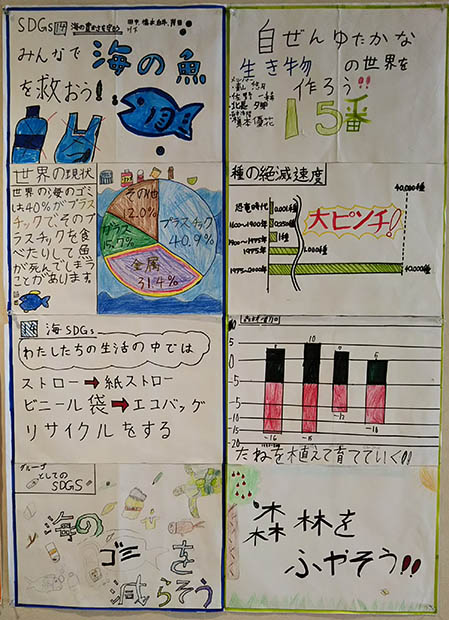 SDGs 14 海の豊かさを守ろう
みんなで
海の魚
を救おう!
世界の現状
世界の海のゴミ
は40%がプラス
チックでそのプ
ラスチックを食
べたりして魚
が死んでしまう
ことがあります
その他
12.0%
プラスチック
40.9%
ガラス
15.7%
金属
31.4%
14 海SDGs
わたしたちの生活の中では
ストロー➡紙ストロー
ビニール袋➡エコバッグ
リサイクルをする
グループ
としての
SDGS
海の
ゴミを
減らそう
自ぜんゆたかな
生き物の世界を
作ろう!!
メンバー
15番
種の絶滅速度
40,000種
恐竜時代 0.001種
1600〜1900年 0.25種
1900〜1975年 1種
1000種
1975〜2000年 40,000種
大ピンチ!
10
5
-5
-10
-15
20
10
9
6
-16
-15
たねを植えて育てていく!!
森林を
ふやそう!!